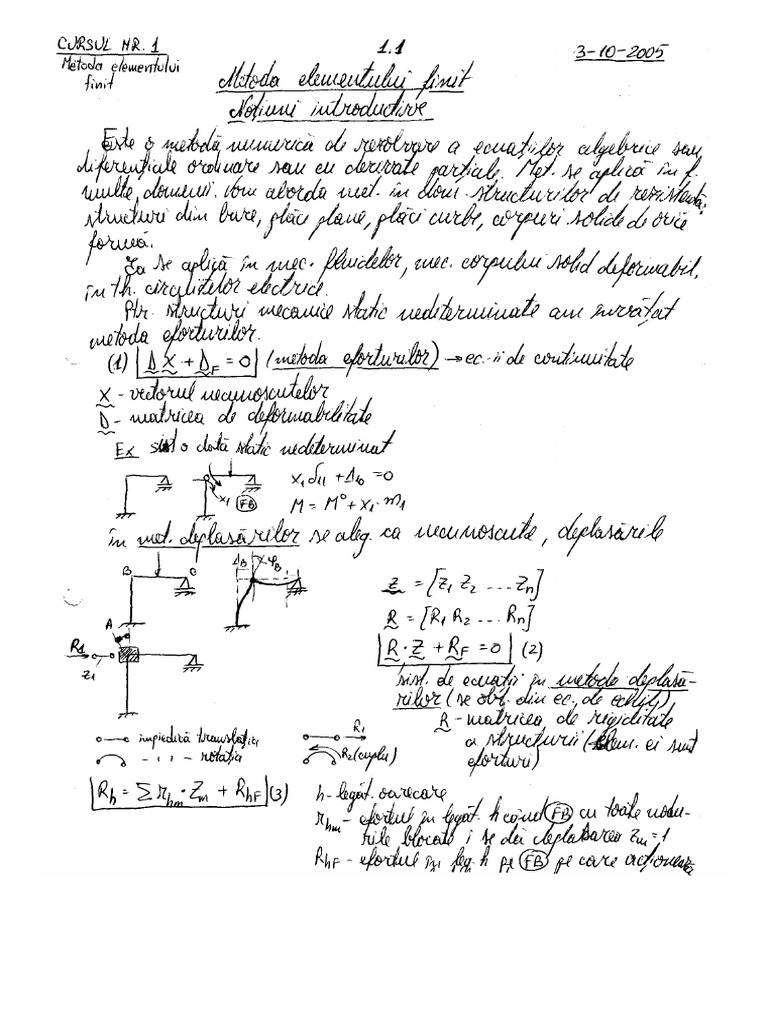 CURSUL NR. 1
1.1
3-10-2005
Metoda elementului
finit
Metoda elementului finit
Noțiuni introductive
Este o metodă numerică de rezolvare a ecuațiilor algebrice sau
diferențiale ordinare sau cu derivate parțiale. Met. se aplică în f.
multe domenii. Vom aborda met. în dom. structurilor de rezistență,
structuri din bare, plăci plane, plăci curbe, corpuri solide de orice
formă.
Ea se aplică în mec. fluidelor, mec. corpului solid deformabil,
în th. circuitelor electrice.
Ptr. structuri mecanice static nedeterminate am învățat
metoda eforturilor.
(1) D X + D_F = 0 (metoda eforturilor) → ec.-ii de continuitate
X - vectorul necunoscutelor
D - matricea de deformabilitate
Ex sist o dată static nedeterminat
x1 FB
x1 δ11 + Δ10 = 0
M = M° + x1·m1
în met. deplasărilor se aleg ca necunoscute, deplasările
B C ΔB φB
Z = [Z1 Z2 ... Zn]
R = [R1 R2 ... Rn]
A R1 Z1
R·Z + R_F = 0 (2)
sist. de ecuații în metoda deplasă-
rilor (se obț. din ec. de echil.)
R - matricea de rigiditate
a structurii (elem. ei sunt
eforturi)
împiedică translația R1
- " - rotația R2 (cuplu)
R_h = Σ r_hm · Z_m + R_hF (3)
h - legăt. oarecare
r_hm - efortul în legăt. h când FB cu toate nodu-
rile blocate i se dă deplasarea Z_m = 1
R_hF - efortul în leg. h pe FB pe care acționează